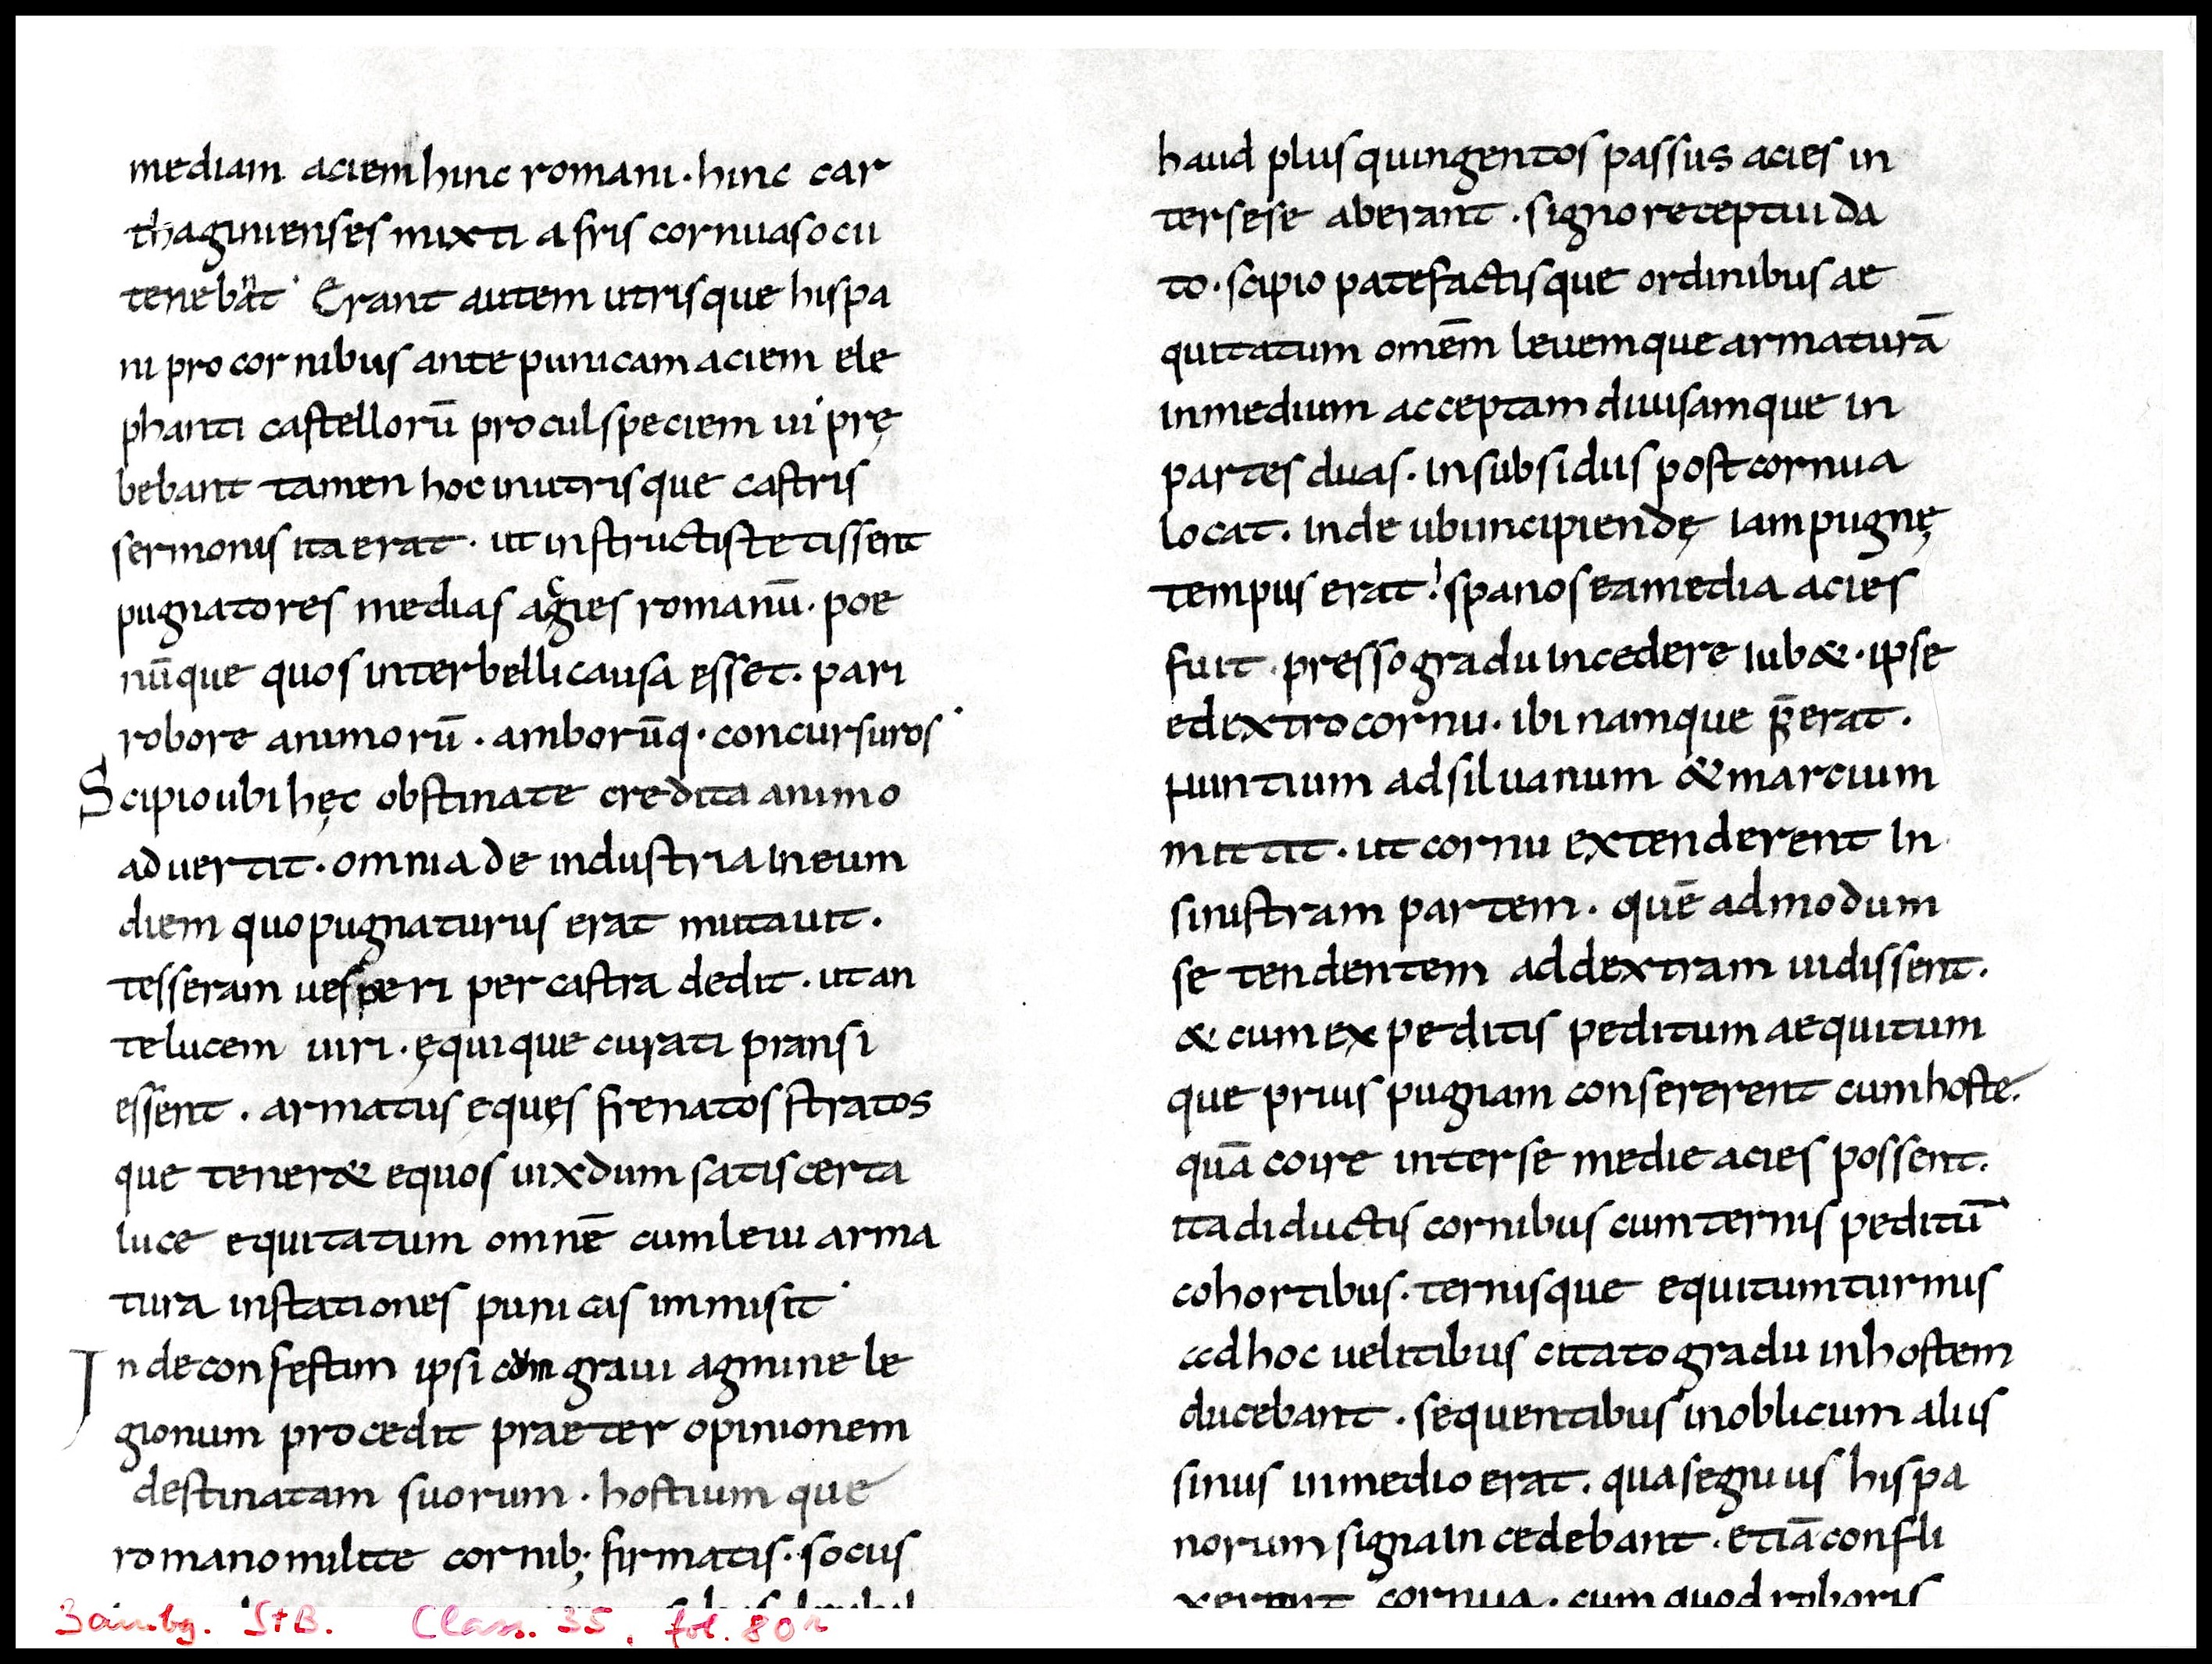 mediam aciem hinc romani · hinc car
thaginienses mixti afris cornua socii
tenebãt · Erant autem utrisque hispa
ni pro cornibus ante punicam aciem ele
phanti castellorū procul speciem ui prę
bebant tamen hoc inutrisque castris
sermonis ita erat · ut instructi stetissent
pugnatores medias acies romanū · poe
nūque quos inter belli causa esset · pari
robore animorū · amborūq · concursuros ·
Scipio ubi hęc obstinate credita animo
aduertit · omnia de industria in eum
diem quo pugnaturus erat mutauit ·
tesseram uesperi per castra dedit · ut an
te lucem uiri · ęquique curati pransi
essent · armatus equęs frenatos stratos
que tener& equos uixdum satis certa
luce equitatum omnē cum leui arma
tura instationes punicas immisit ·
Inde confestim ipsi cum graui agmine le
gionum procedit praeter opinionem
destinatam suorum · hostium que
romano milite cornib; firmatis · sociis
haud plus quingentos passus acies in
ter sese aberant · signo receptui da
to · scipio patefactisque ordinibus ae
quitatum omēm leuemque armaturā
inmedium acceptam diuisamque in
partes duas · insubsidiis post cornua
locat · inde ubi incipiendę iam pugnę
tempus erat · ispanos ea media acies
fuit · presso gradu incedere iub& · ipse
e dextro cornu · ibi namque p̄erat ·
nuntium ad siluanum & marcium
mittit · ut cornu extenderent in
sinistram partem · quē admodum
se tendentem ad dextram uidissent ·
& cum expeditis peditum aequitum
que prius pugnam consererent cum hoste ·
quā coire inter se medie acies possent ·
ita diductis cornibus cum ternis peditū
cohortibus · ternisque equitum turmis
adhoc uelitibus citato gradu in hostem
ducebant · sequentibus in oblicum aliis
sinus in medio erat · qua segnius hispa
norum signa incedebant · etiā confli
xerant cornua · cum quod roboris
Bambg. StB. Class. 35, fol. 80r